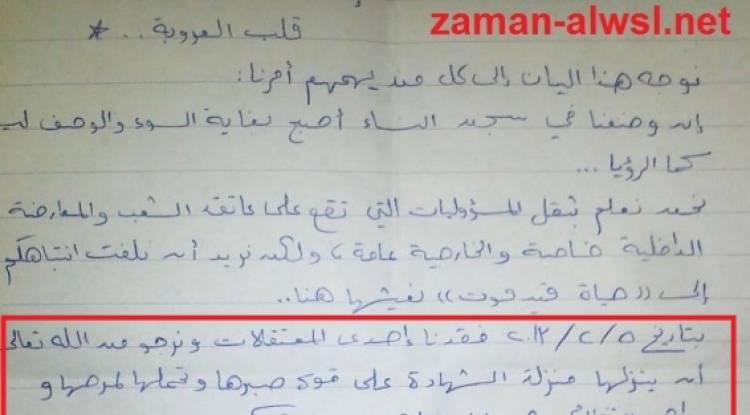 zaman-alwsl.net
قلب العروبة . . *
نوجه هذا البيان إلى كل من يهمهم أمرنا:
إن وضعنا في سجن النساء أصبح بغاية السوء والوصف ليس
كما الرؤيا ...
نحن نعلم بثقل المسؤوليات التي تقع على عاتق الشعب والمعارضة
الداخلية خاصة والخارجية عامة، ولكن نريد أن نلفت انتباهكم
إلى ((حياة قيد موت)) نعيشها هنا..
بتاريخ ٢٠١٣/٢/٥ فقدنا إحدى المعتقلات ونرجو من الله تعالى
أن ينزلها منزلة الشهادة على قوة صبرها وتحملها لمرضها و